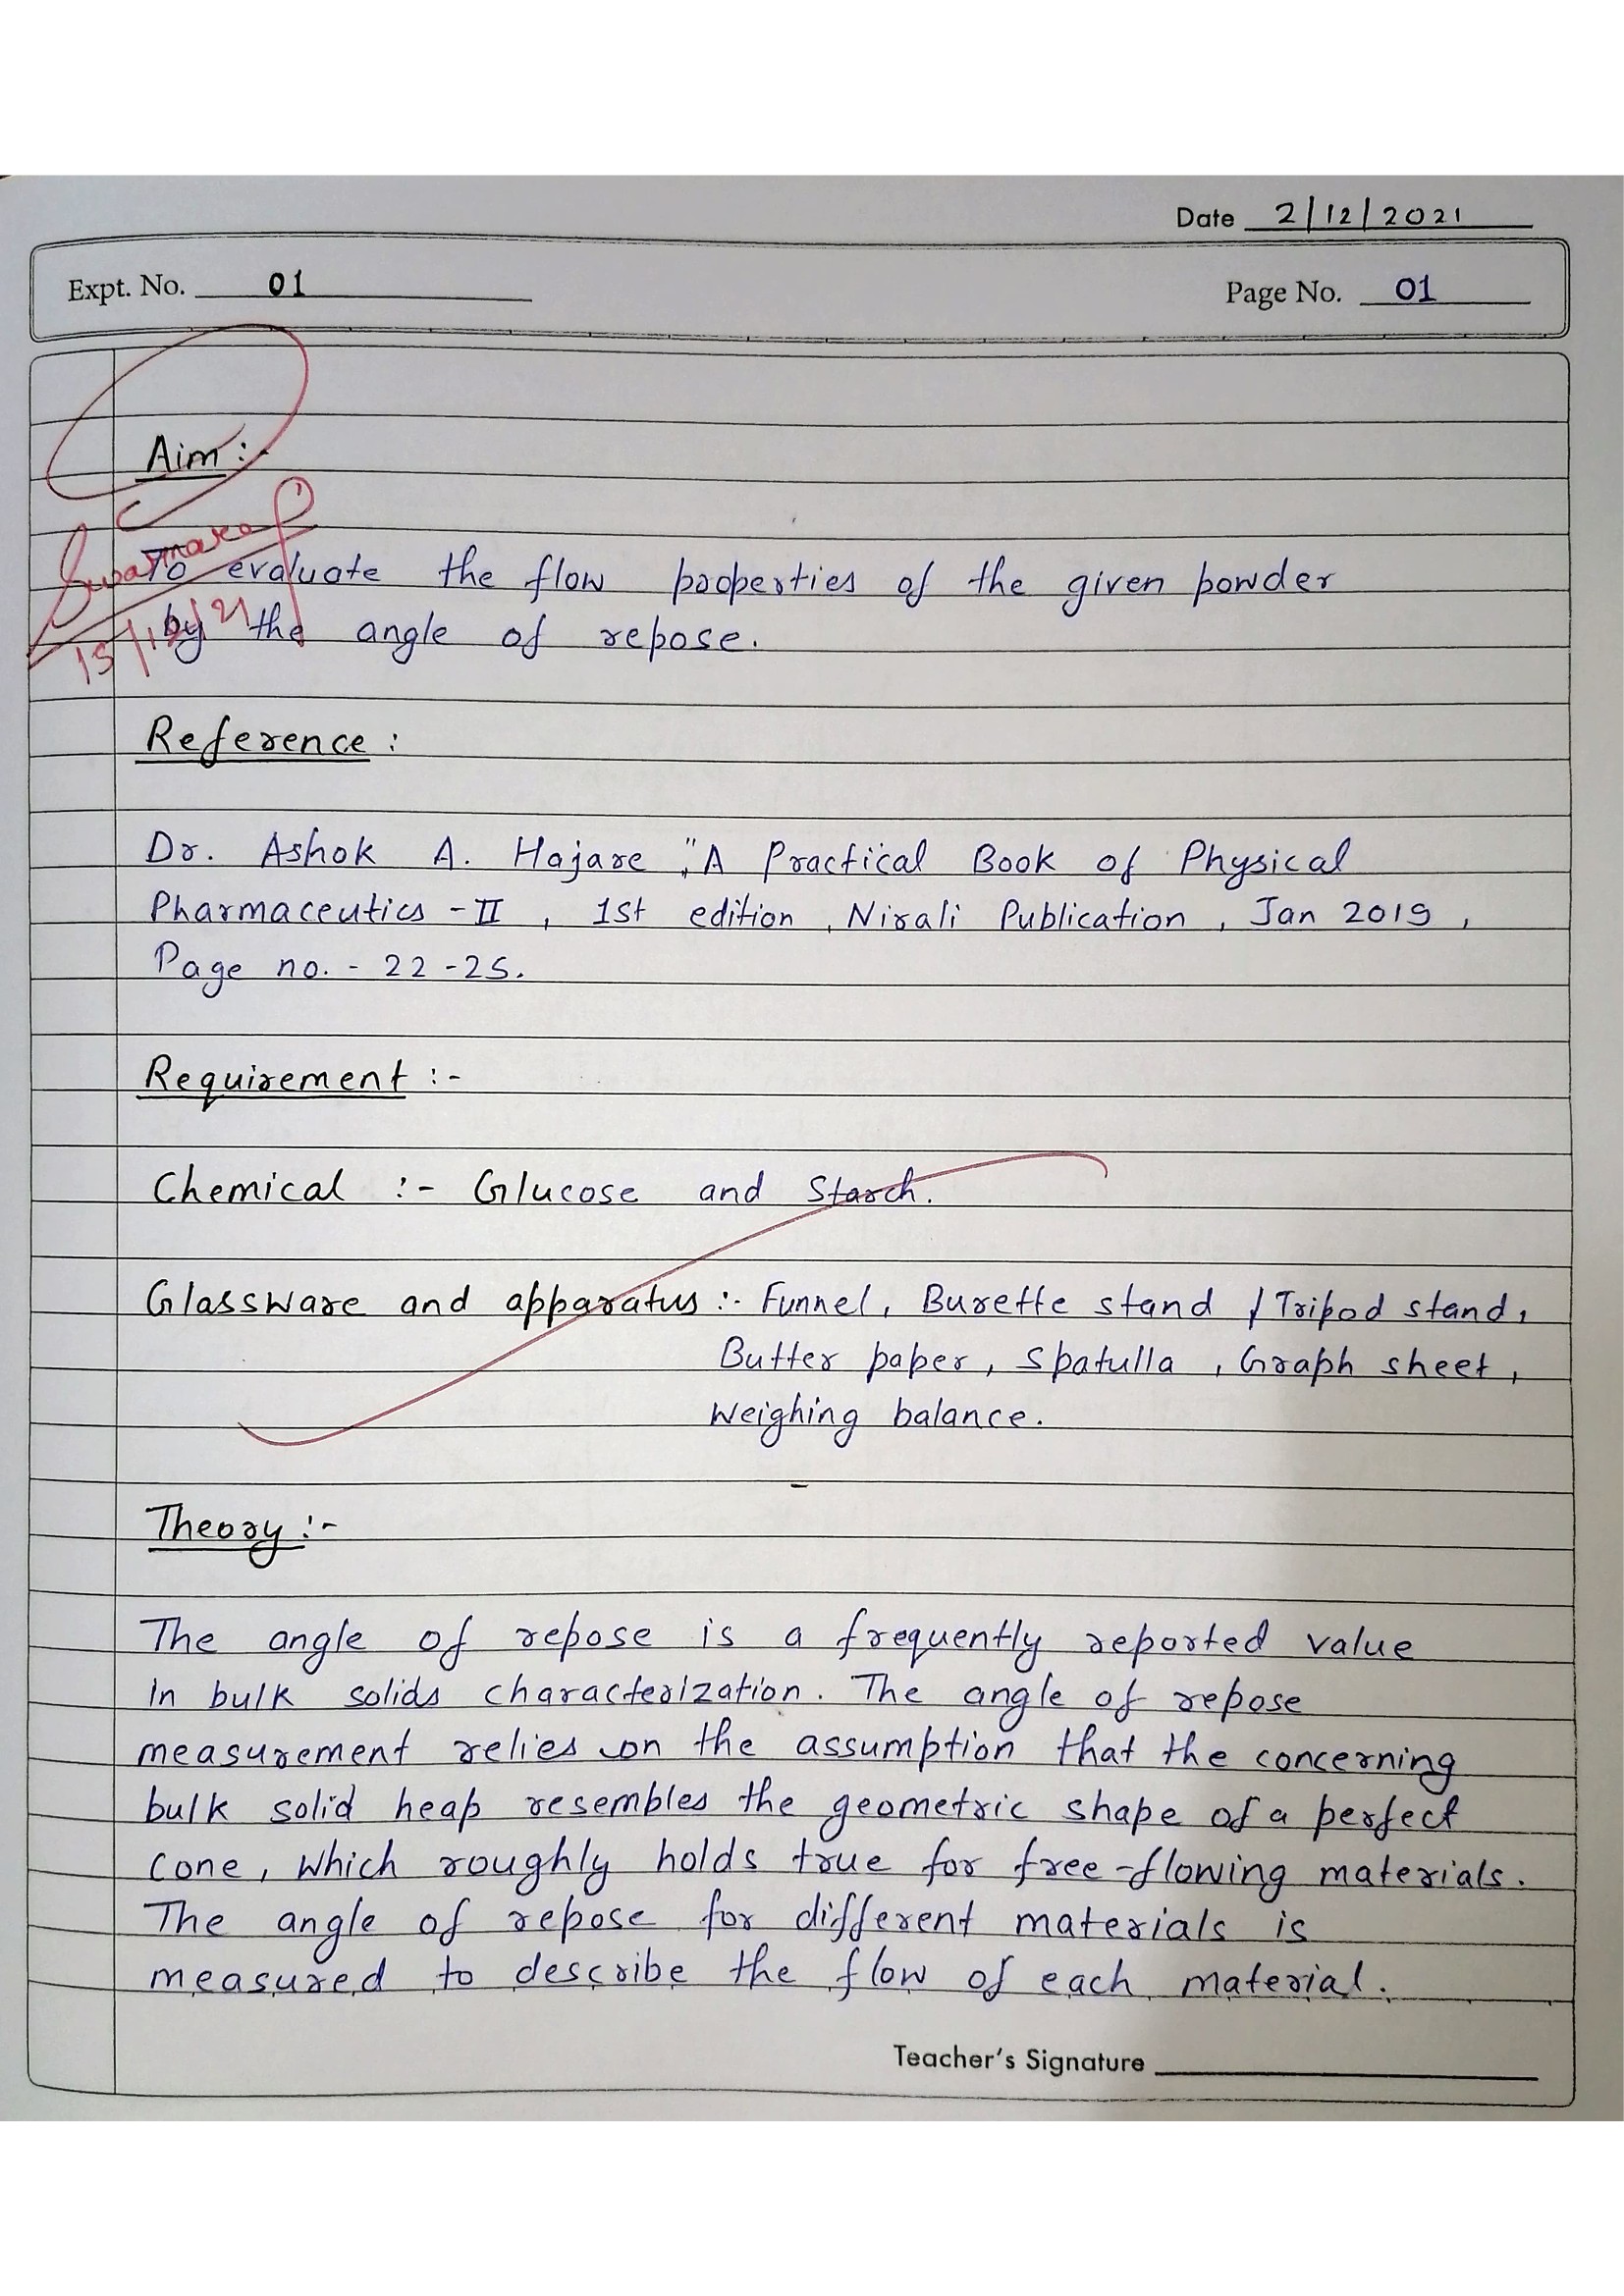 Date 2/12/2021
Expt. No. 01
Page No. 01
Aim :-
To evaluate the flow properties of the given powder
by the angle of repose.
Reference :
Dr. Ashok A. Hajare ,"A Practical Book of Physical
Pharmaceutics - II , 1st edition , Nirali Publication , Jan 2019 ,
Page no. - 22 - 25.
Requirement :-
Chemical :- Glucose and Starch.
Glassware and apparatus :- Funnel, Burette stand / Tripod stand,
Butter paper, Spatulla , Graph sheet ,
Weighing balance.
Theory :-
The angle of repose is a frequently reported value
in bulk solids characterization. The angle of repose
measurement relies on the assumption that the concerning
bulk solid heap resembles the geometric shape of a perfect
cone, which roughly holds true for free-flowing materials.
The angle of repose for different materials is
measured to describe the flow of each material.
Teacher's Signature